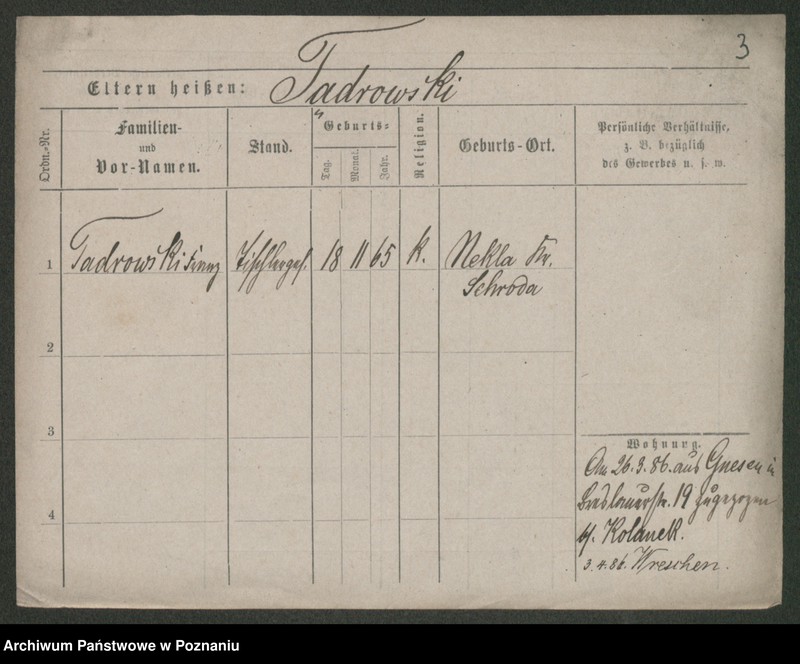 3
Eltern heißen: Tadrowski
Ordn.-Nr.
Familien-
und
Vor-Namen.
Stand.
Geburts-
Tag.
Monat.
Jahr.
Religion.
Geburts-Ort.
Persönliche Verhältnisse,
z. B. bezüglich
des Gewerbes u. s. w.
1 Tadrowski Franz Tischlerges. 18 11 65 k. Nekla Kr.
Schroda
2
3
4
Wohnung.
Am 26.3.86. aus Gnesen in
Breslauerstr. 19 zugezogen
Kolanek.
3.4.86. Wreschen.
Archiwum Państwowe w Poznaniu